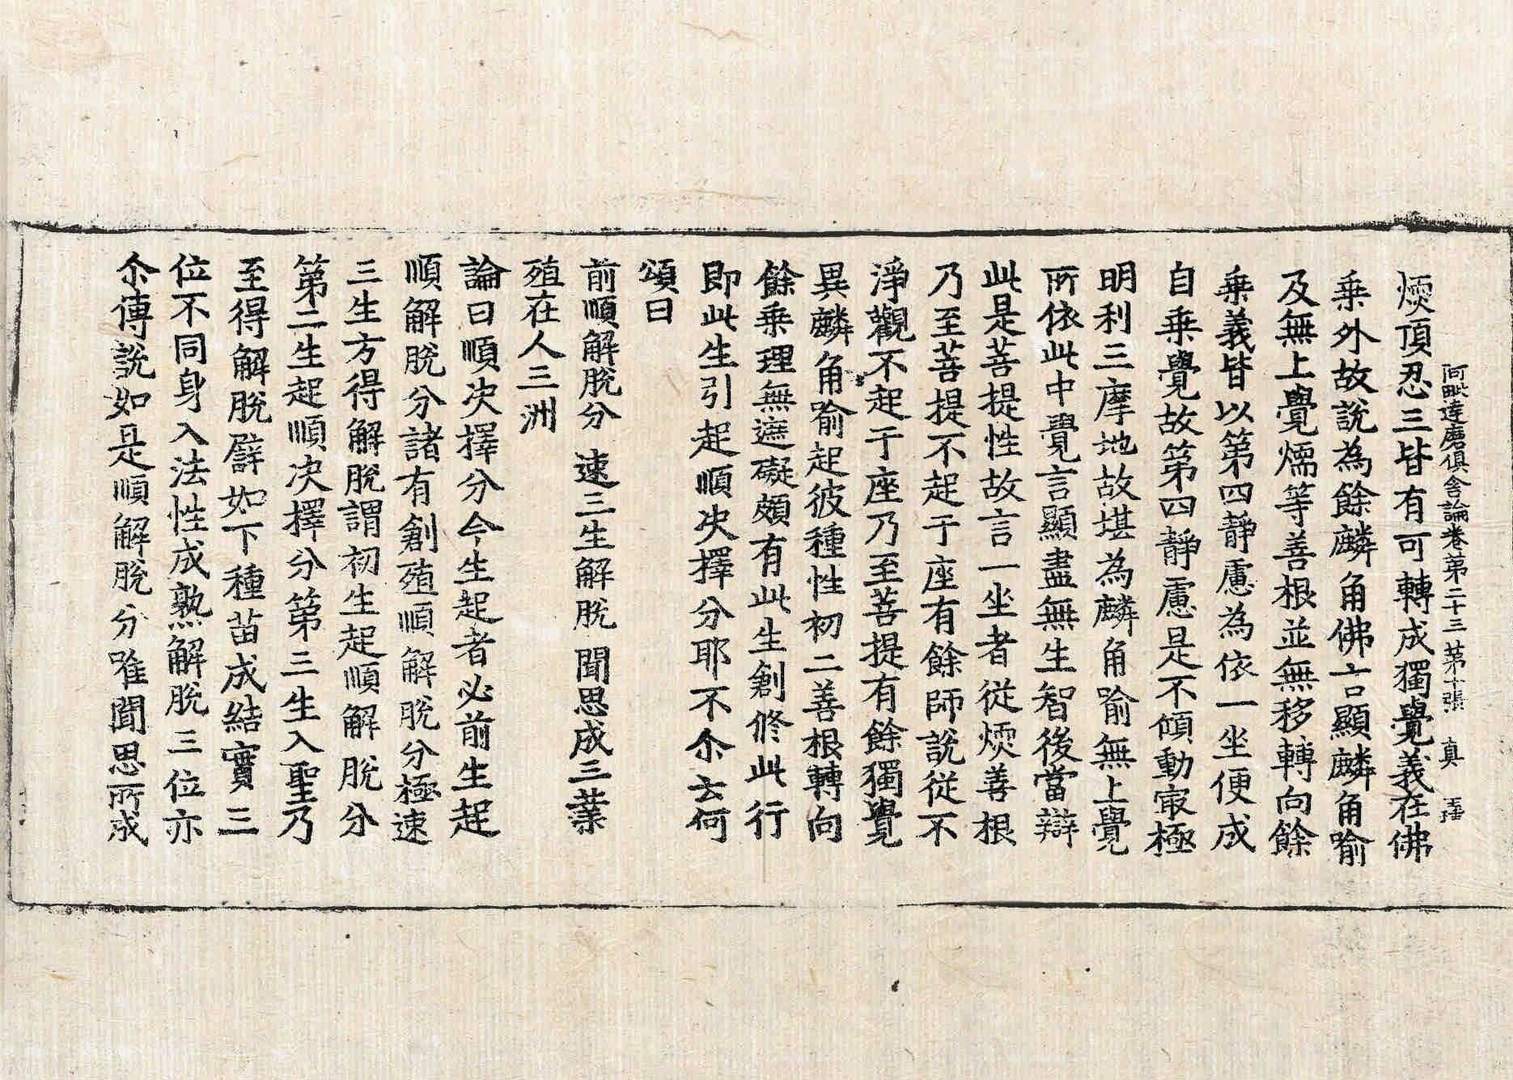 阿毗達磨俱舍論卷第二十三 第十張 真
煗頂忍三皆有可轉成獨覺義在佛
乗外故說為餘麟角佛言顯麟角喻
及無上覺煗等善根並無移轉向餘
乗義皆以第四靜慮為依一坐便成
自乗覺故第四靜慮是不傾動㝡極
明利三摩地故堪為麟角喻無上覺
所依此中覺言顯盡無生智後當辯
此是菩提性故言一坐者從煗善根
乃至菩提不起于座有餘師說從不
淨觀不起于座乃至菩提有餘獨覺
異麟角喻起彼種性初二善根轉向
餘乗理無遮礙頗有此生創修此行
即此生引起順决擇分耶不尒云何
頌曰
前順解脫分 速三生解脫 聞思成三業
殖在人三洲
論曰順决擇分今生起者必前生起
順解脫分諸有創殖順解脫分極速
三生方得解脫謂初生起順解脫分
第二生起順决擇分第三生入聖乃
至得解脫譬如下種苗成結實三
位不同身入法性成熟解脫三位亦
尒傳說如是順解脫分唯聞思所成